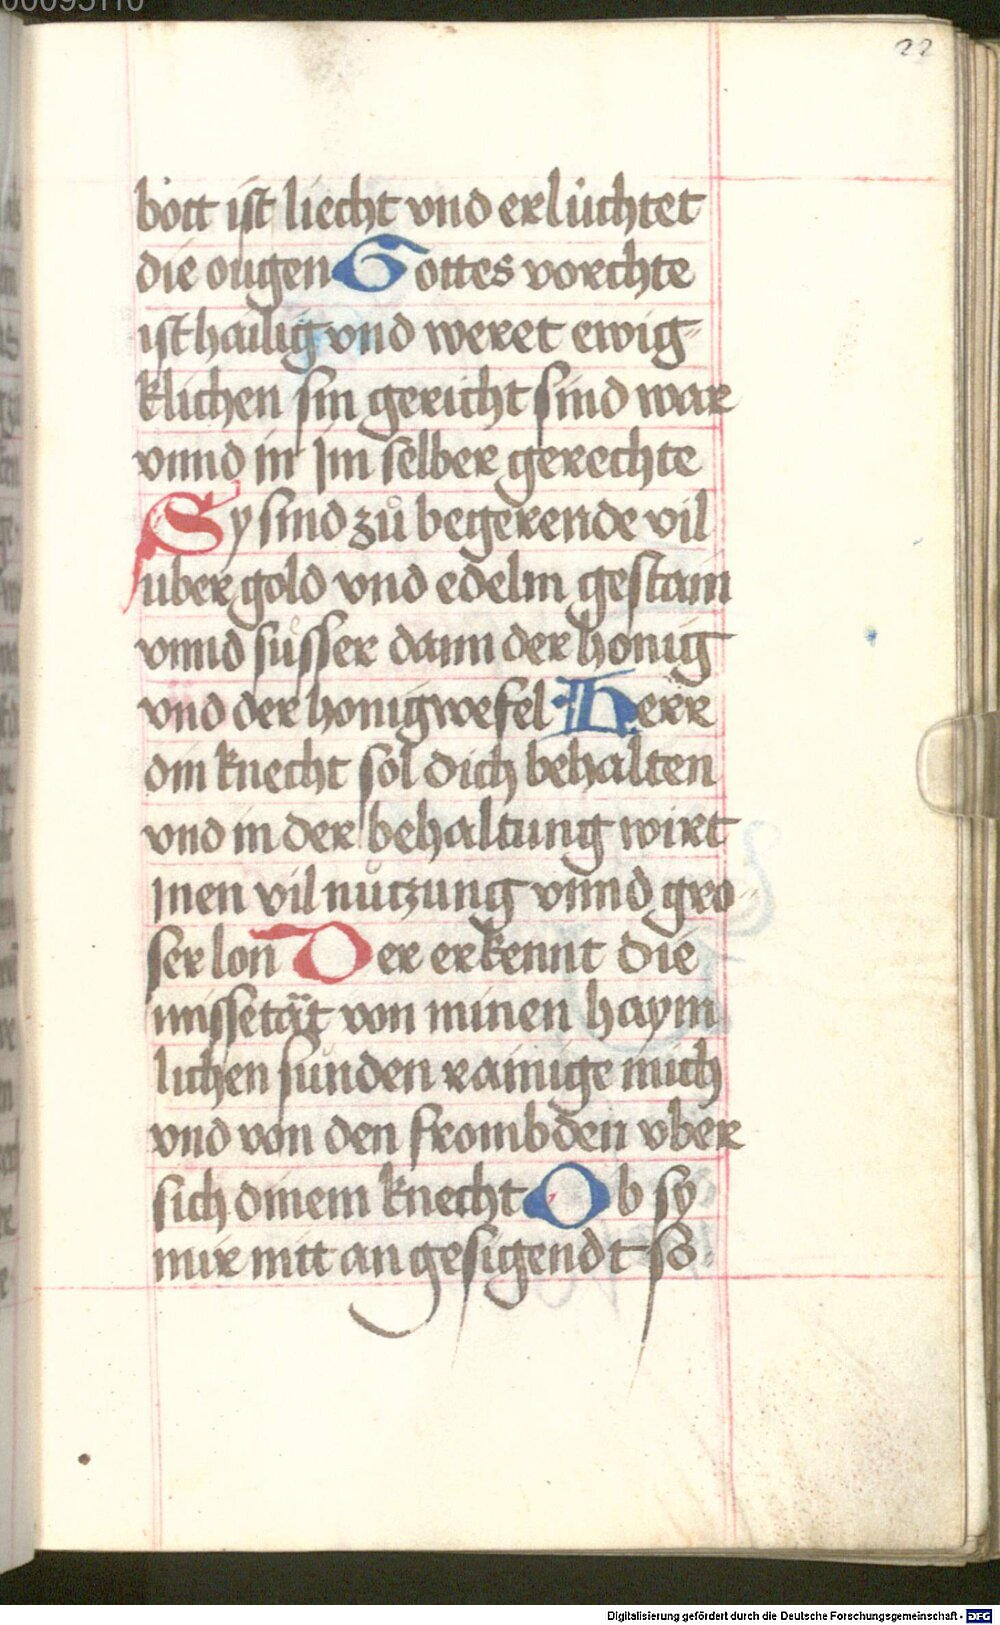 00095110
22
bott ist liecht vnd erlúchtet
die ougen Gottes vorchte
ist hailig vnd weret ewig
klichen sin gericht sind war
vnnd in Im selber gerechte
Sy sind zů begerende vil
uber gold vnd edelm gestain
vnnd sůsser dann der honig
vnd der honigwefel Herr
din knecht sol dich behalten
vnd in der behaltung wirt
Inen vil nůtzung vnnd gro
ser lon Der erkennt die
missetät von minen haym
lichen súnden rainige mich
vnd von den frombden vber
sich dinem knecht Ob sy
mir mitt an gesigendt so
Digitalisierung gefördert durch die Deutsche Forschungsgemeinschaft - DFG